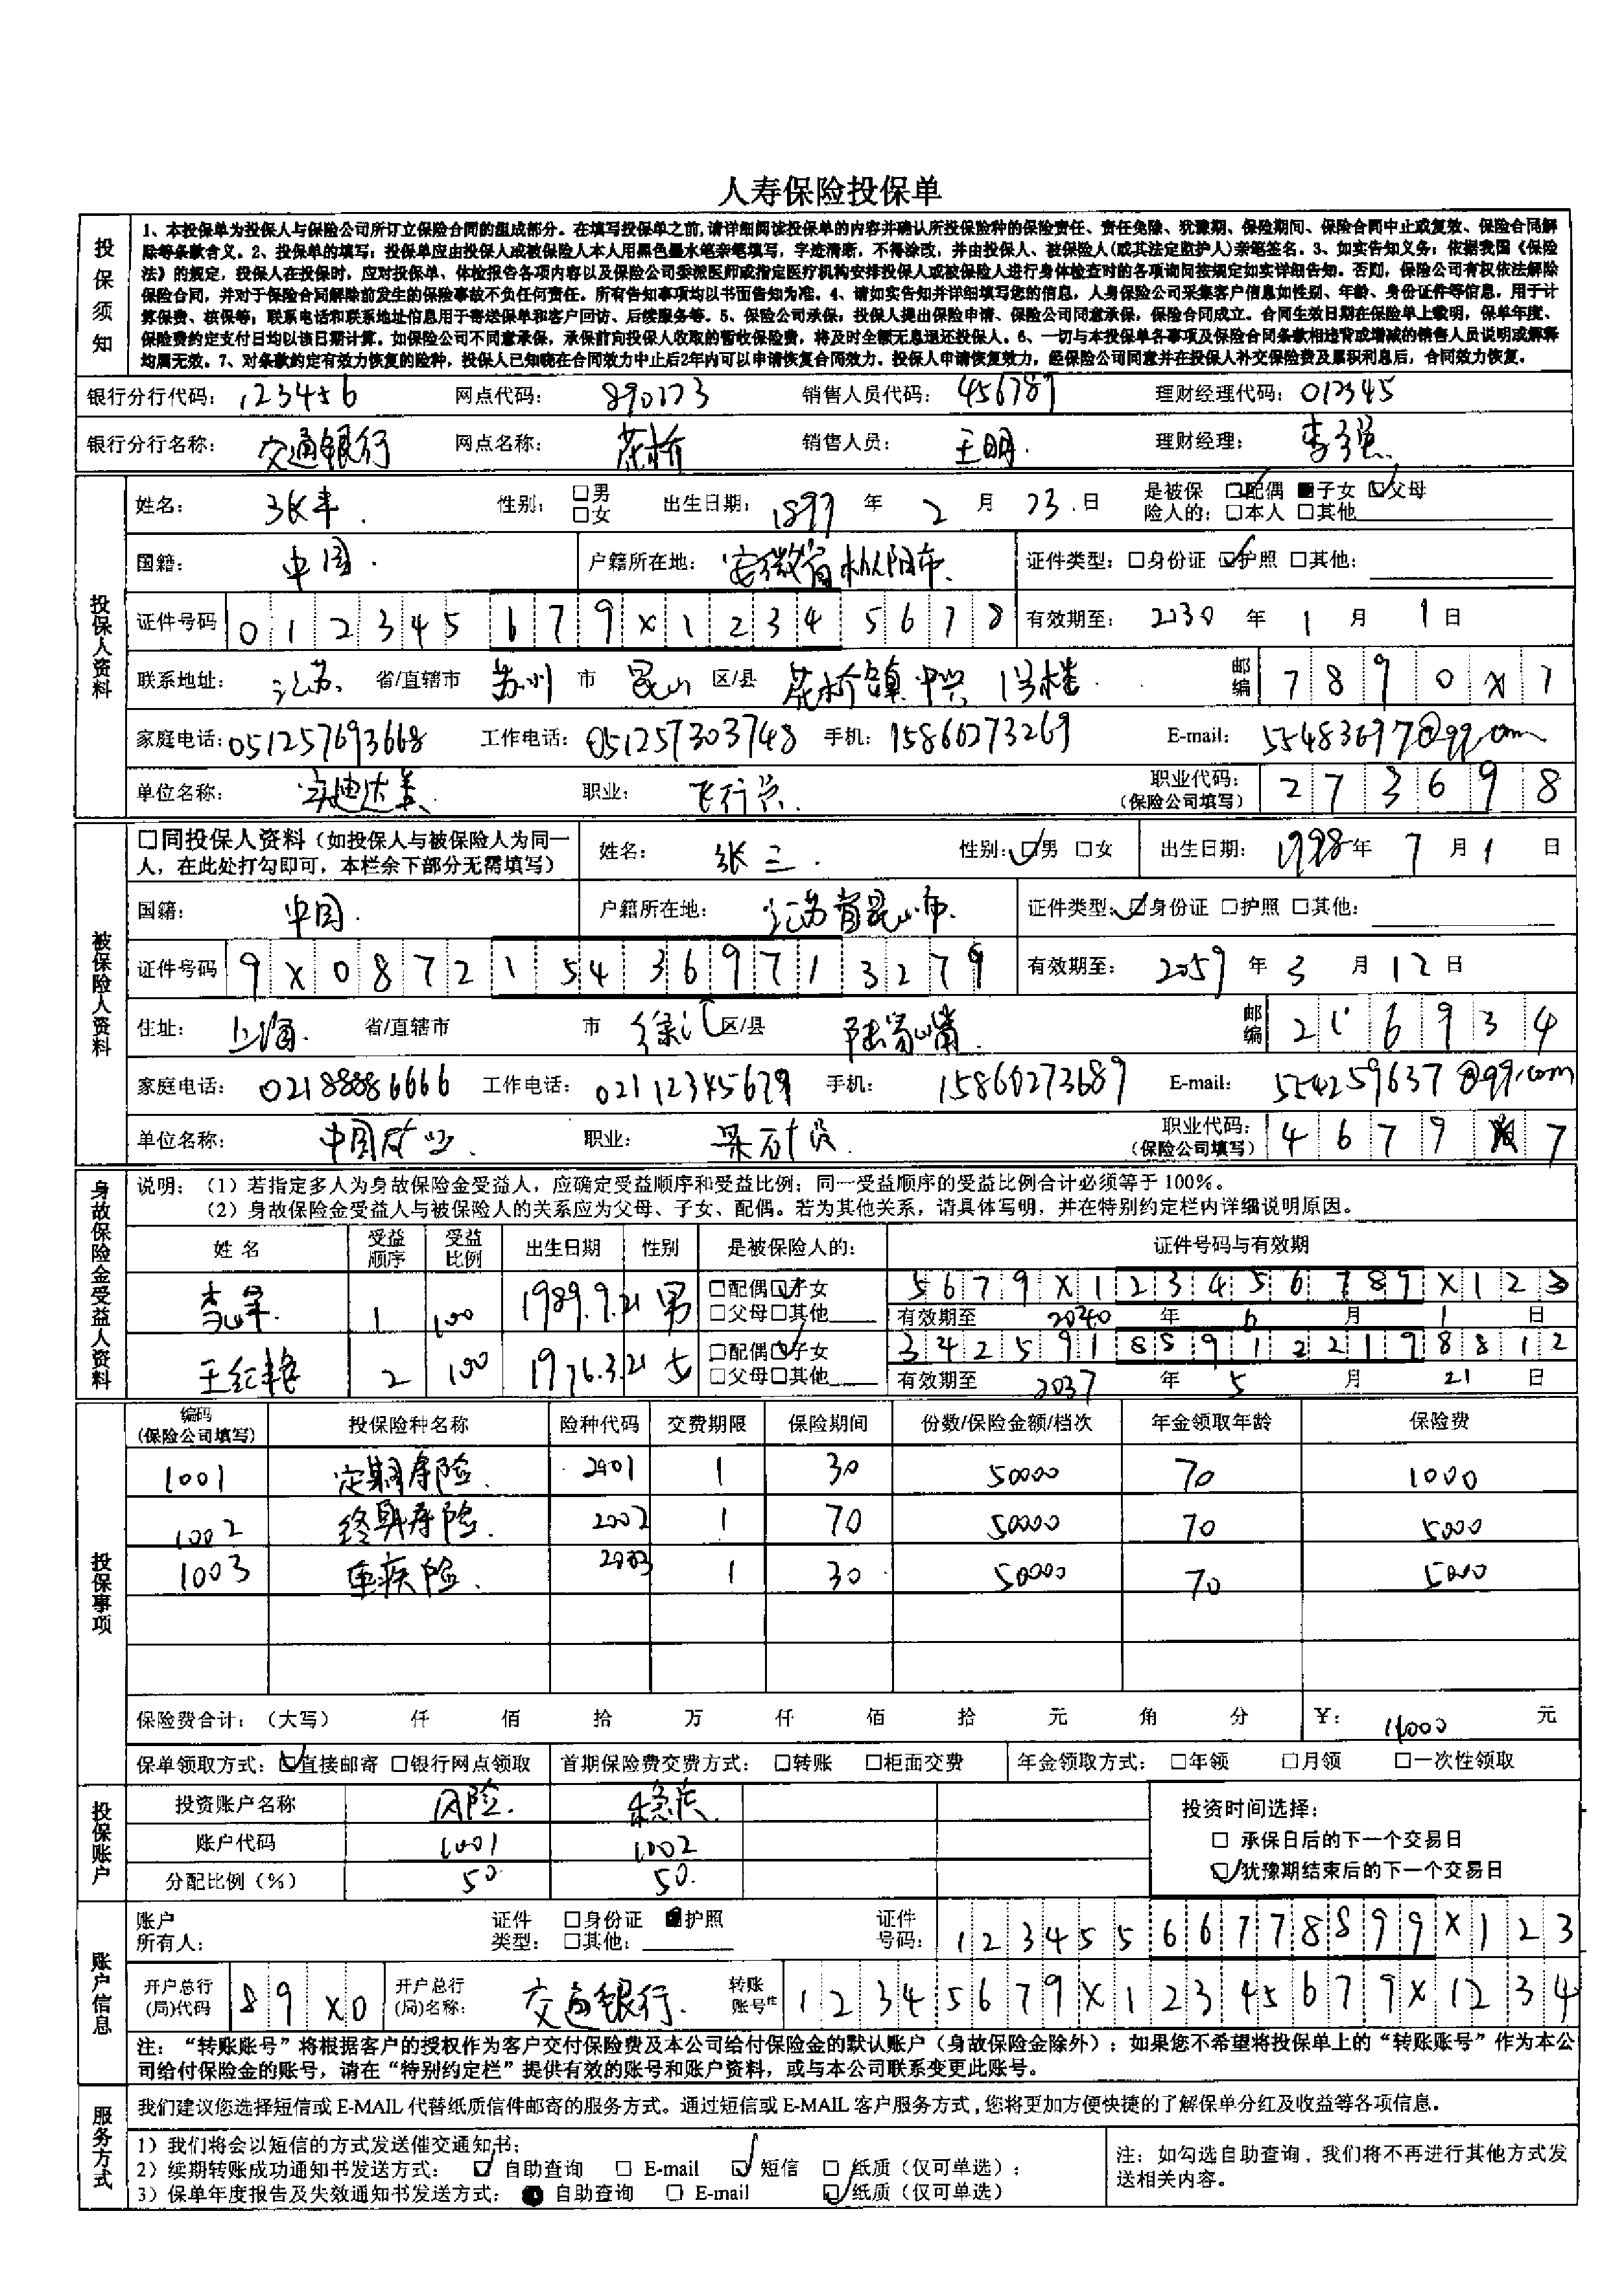 人寿保险投保单
投保须知
1、本投保单为投保人与保险公司所订立保险合同的组成部分。在填写投保单之前,请详细阅读投保单的内容并确认所投保险种的保险责任、责任免除、犹豫期、保险期间、保险合同中止或复效、保险合同解
除等条款含义。2、投保单的填写：投保单应由投保人或被保险人本人用黑色墨水笔亲笔填写，字迹清晰，不得涂改，并由投保人、被保险人(或其法定监护人)亲笔签名。3、如实告知义务：依据我国《保险
法》的规定，投保人在投保时，应对投保单、体检报告各项内容以及保险公司委派医师或指定医疗机构安排投保人或被保险人进行身体检查时的各项询问按规定如实详细告知。否则，保险公司有权依法解除
保险合同，并对于保险合同解除前发生的保险事故不负任何责任。所有告知事项均以书面告知为准。4、请如实告知并详细填写您的信息，人身保险公司采集客户信息如性别、年龄、身份证件等信息，用于计
算保费、核保等；联系电话和联系地址信息用于寄送保单和客户回访、后续服务等。5、保险公司承保：投保人提出保险申请、保险公司同意承保，保险合同成立。合同生效日期在保险单上载明，保单年度、
保险费约定支付日均以该日期计算。如保险公司不同意承保，承保前向投保人收取的暂收保险费，将及时全额无息退还投保人。6、一切与本投保单各事项及保险合同条款相违背或增减的销售人员说明或解释
均属无效。7、对条款约定有效力恢复的险种，投保人已知晓在合同效力中止后2年内可以申请恢复合同效力。投保人申请恢复效力，经保险公司同意并在投保人补交保险费及累积利息后，合同效力恢复。
银行分行代码： 123456 网点代码： 890123 销售人员代码： 456789 理财经理代码： 012345
银行分行名称： 交通银行 网点名称： 花桥 销售人员： 王明. 理财经理： 李子强.
投保人资料
姓名： 张丰. 性别： □男 □女 出生日期： 1897 年 2 月 23. 日 是被保险人的： □配偶 ■子女 □父母 □本人 □其他
国籍： 中国. 户籍所在地： 安徽省枞阳市. 证件类型：□身份证 □护照 □其他：
证件号码 0 1 2 3 4 5 6 7 9 X 1 2 3 4 5 6 7 8 有效期至： 2030 年 1 月 1 日
联系地址： 江苏. 省/直辖市 苏州 市 昆山 区/县 花桥镇 中兴 1号楼. 邮编 7 8 9 0 X 1
家庭电话：051257693668 工作电话：051257303748 手机：15860273269 E-mail： 554836977@qq.com
单位名称： 安迪达美. 职业： 飞行员. 职业代码：（保险公司填写） 2 7 3 6 9 8
被保险人资料
□同投保人资料（如投保人与被保险人为同一
人，在此处打勾即可，本栏余下部分无需填写） 姓名： 张三. 性别：□男 □女 出生日期： 1998年 7 月 1 日
国籍： 中国. 户籍所在地： 江苏省昆山市. 证件类型：□身份证 □护照 □其他：
证件号码 9 X 0 8 7 2 1 5 4 3 6 9 7 1 3 2 7 9 有效期至： 2059 年 3 月 12 日
住址： 上海. 省/直辖市 市 徐汇 区/县 陆家嘴. 邮编 2 1 6 9 3 4
家庭电话： 02188886666 工作电话： 02112345679 手机： 15860273689 E-mail： 554259637@qq.com
单位名称： 中国矿业. 职业： 采矿员. 职业代码：（保险公司填写） 4 6 7 9 7
身故保险金受益人资料
说明：（1）若指定多人为身故保险金受益人，应确定受益顺序和受益比例；同一受益顺序的受益比例合计必须等于100%。
（2）身故保险金受益人与被保险人的关系应为父母、子女、配偶。若为其他关系，请具体写明，并在特别约定栏内详细说明原因。
姓 名 受益顺序 受益比例 出生日期 性别 是被保险人的： 证件号码与有效期
1 100 1989.9.21 男 □配偶□子女 □父母□其他 5 6 7 9 X 1 2 3 4 5 6 7 8 9 X 1 2 3
有效期至 2040 年 6 月 1 日
王红艳 2 100 1976.3.21 女 □配偶□子女 □父母□其他 3 4 2 5 9 1 8 8 9 1 2 2 1 9 8 8 1 2
有效期至 2037 年 5 月 21 日
投保事项
编码（保险公司填写） 投保险种名称 险种代码 交费期限 保险期间 份数/保险金额/档次 年金领取年龄 保险费
1001 定期寿险. 2001 1 30 50000 70 1000
1002 终身寿险. 2002 1 70 50000 70 5000
1003 重疾险. 2003 1 30 50000 70 5000
保险费合计：（大写） 仟 佰 拾 万 仟 佰 拾 元 角 分 ¥： 11000 元
保单领取方式：□直接邮寄 □银行网点领取 首期保险费交费方式： □转账 □柜面交费 年金领取方式： □年领 □月领 □一次性领取
投保账户
投资账户名称 风险. 稳庆. 投资时间选择：
账户代码 1001 1002 □ 承保日后的下一个交易日
分配比例（%） 50 50. □ 犹豫期结束后的下一个交易日
账户信息
账户所有人： 证件类型： □身份证 ■护照 □其他： 证件号码： 1 2 3 4 5 5 6 6 7 7 8 8 9 9 X 1 2 3
开户总行(局)代码 8 9 X 0 开户总行(局)名称： 交通银行. 转账账号注 1 2 3 4 5 6 7 9 X 1 2 3 4 5 6 7 9 X 1 2 3 4
注：“转账账号”将根据客户的授权作为客户交付保险费及本公司给付保险金的默认账户（身故保险金除外）；如果您不希望将投保单上的“转账账号”作为本公
司给付保险金的账号，请在“特别约定栏”提供有效的账号和账户资料，或与本公司联系变更此账号。
服务方式
我们建议您选择短信或 E-MAIL 代替纸质信件邮寄的服务方式。通过短信或 E-MAIL 客户服务方式，您将更加方便快捷的了解保单分红及收益等各项信息。
1）我们将会以短信的方式发送催交通知书；
2）续期转账成功通知书发送方式： □ 自助查询 □ E-mail □ 短信 □ 纸质（仅可单选）；
3）保单年度报告及失效通知书发送方式： ■ 自助查询 □ E-mail □ 纸质（仅可单选）
注：如勾选自助查询，我们将不再进行其他方式发
送相关内容。